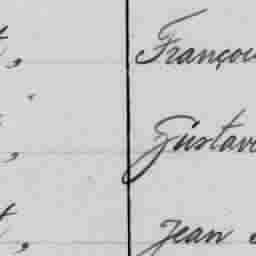 t, Françou
,  Gustave
t, Jean